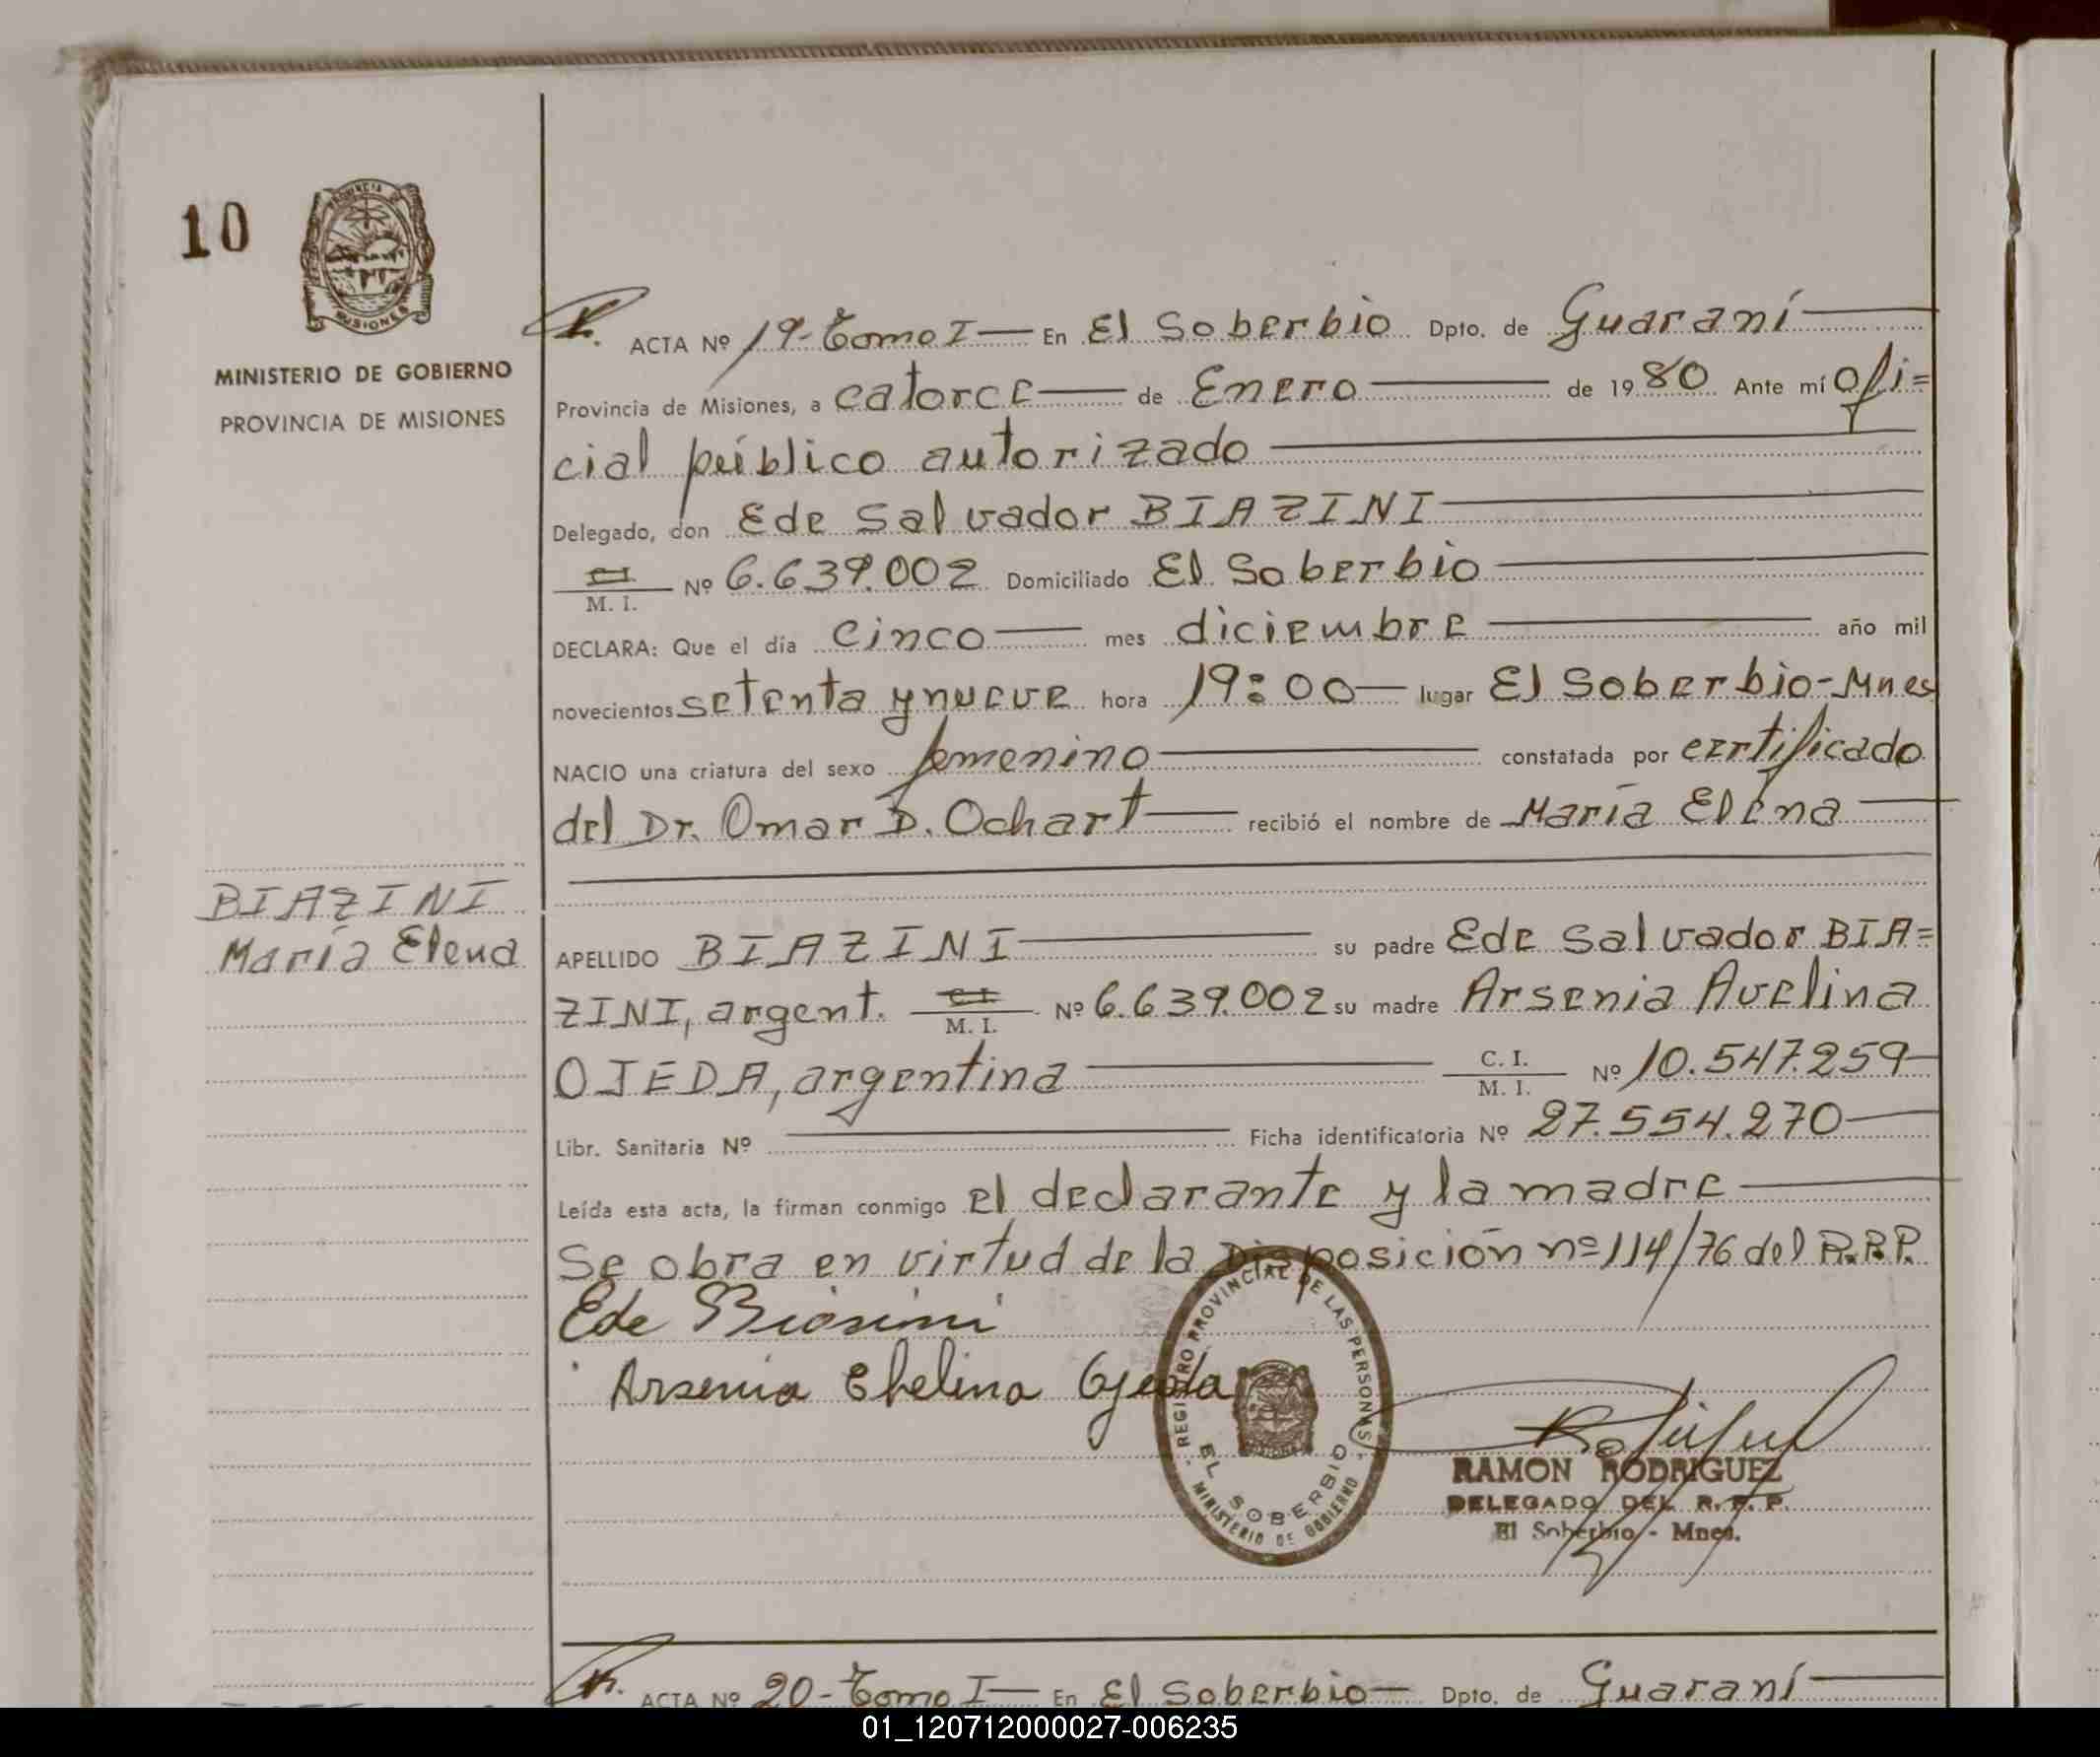 10
PROVINCIA DE
MISIONES
MINISTERIO DE GOBIERNO
PROVINCIA DE MISIONES
ACTA Nº 19-Tomo I En El Soberbio Dpto. de Guaraní
Provincia de Misiones, a catorce de Enero de 1980 Ante mí ofi=
cial público autorizado
Delegado, don Ede Salvador BIAZINI
C.I. Nº 6.639.002 Domiciliado El Soberbio
M. I.
DECLARA: Que el día cinco mes diciembre año mil
novecientos setenta y nueve hora 19:00 lugar El Soberbio-Mnes
NACIO una criatura del sexo femenino constatada por certificado
del Dr. Omar D. Ochart recibió el nombre de María Elena
BIAZINI
María Elena
APELLIDO BIAZINI su padre Ede Salvador BIA=
ZINI, argent. C.I. Nº 6.639.002 su madre Arsenia Avelina
M. I.
OJEDA, argentina C. I. Nº 10.547.259
M. I.
Libr. Sanitaria Nº Ficha identificatoria Nº 27.554.270
Leída esta acta, la firman conmigo el declarante y la madre
Se obra en virtud de la Disposición nº 114/76 del R.P.P.
Ede Biasini
Arsenia Ebelina Ojeda
REGISTRO PROVINCIAL DE LAS PERSONAS
EL SOBERBIO
MINISTERIO DE GOBIERNO
RAMON RODRIGUEZ
DELEGADO DEL R. P. P.
El Soberbio - Mnes.
ACTA Nº 20-Tomo I En El Soberbio Dpto. de Guaraní
01_120712000027-006235